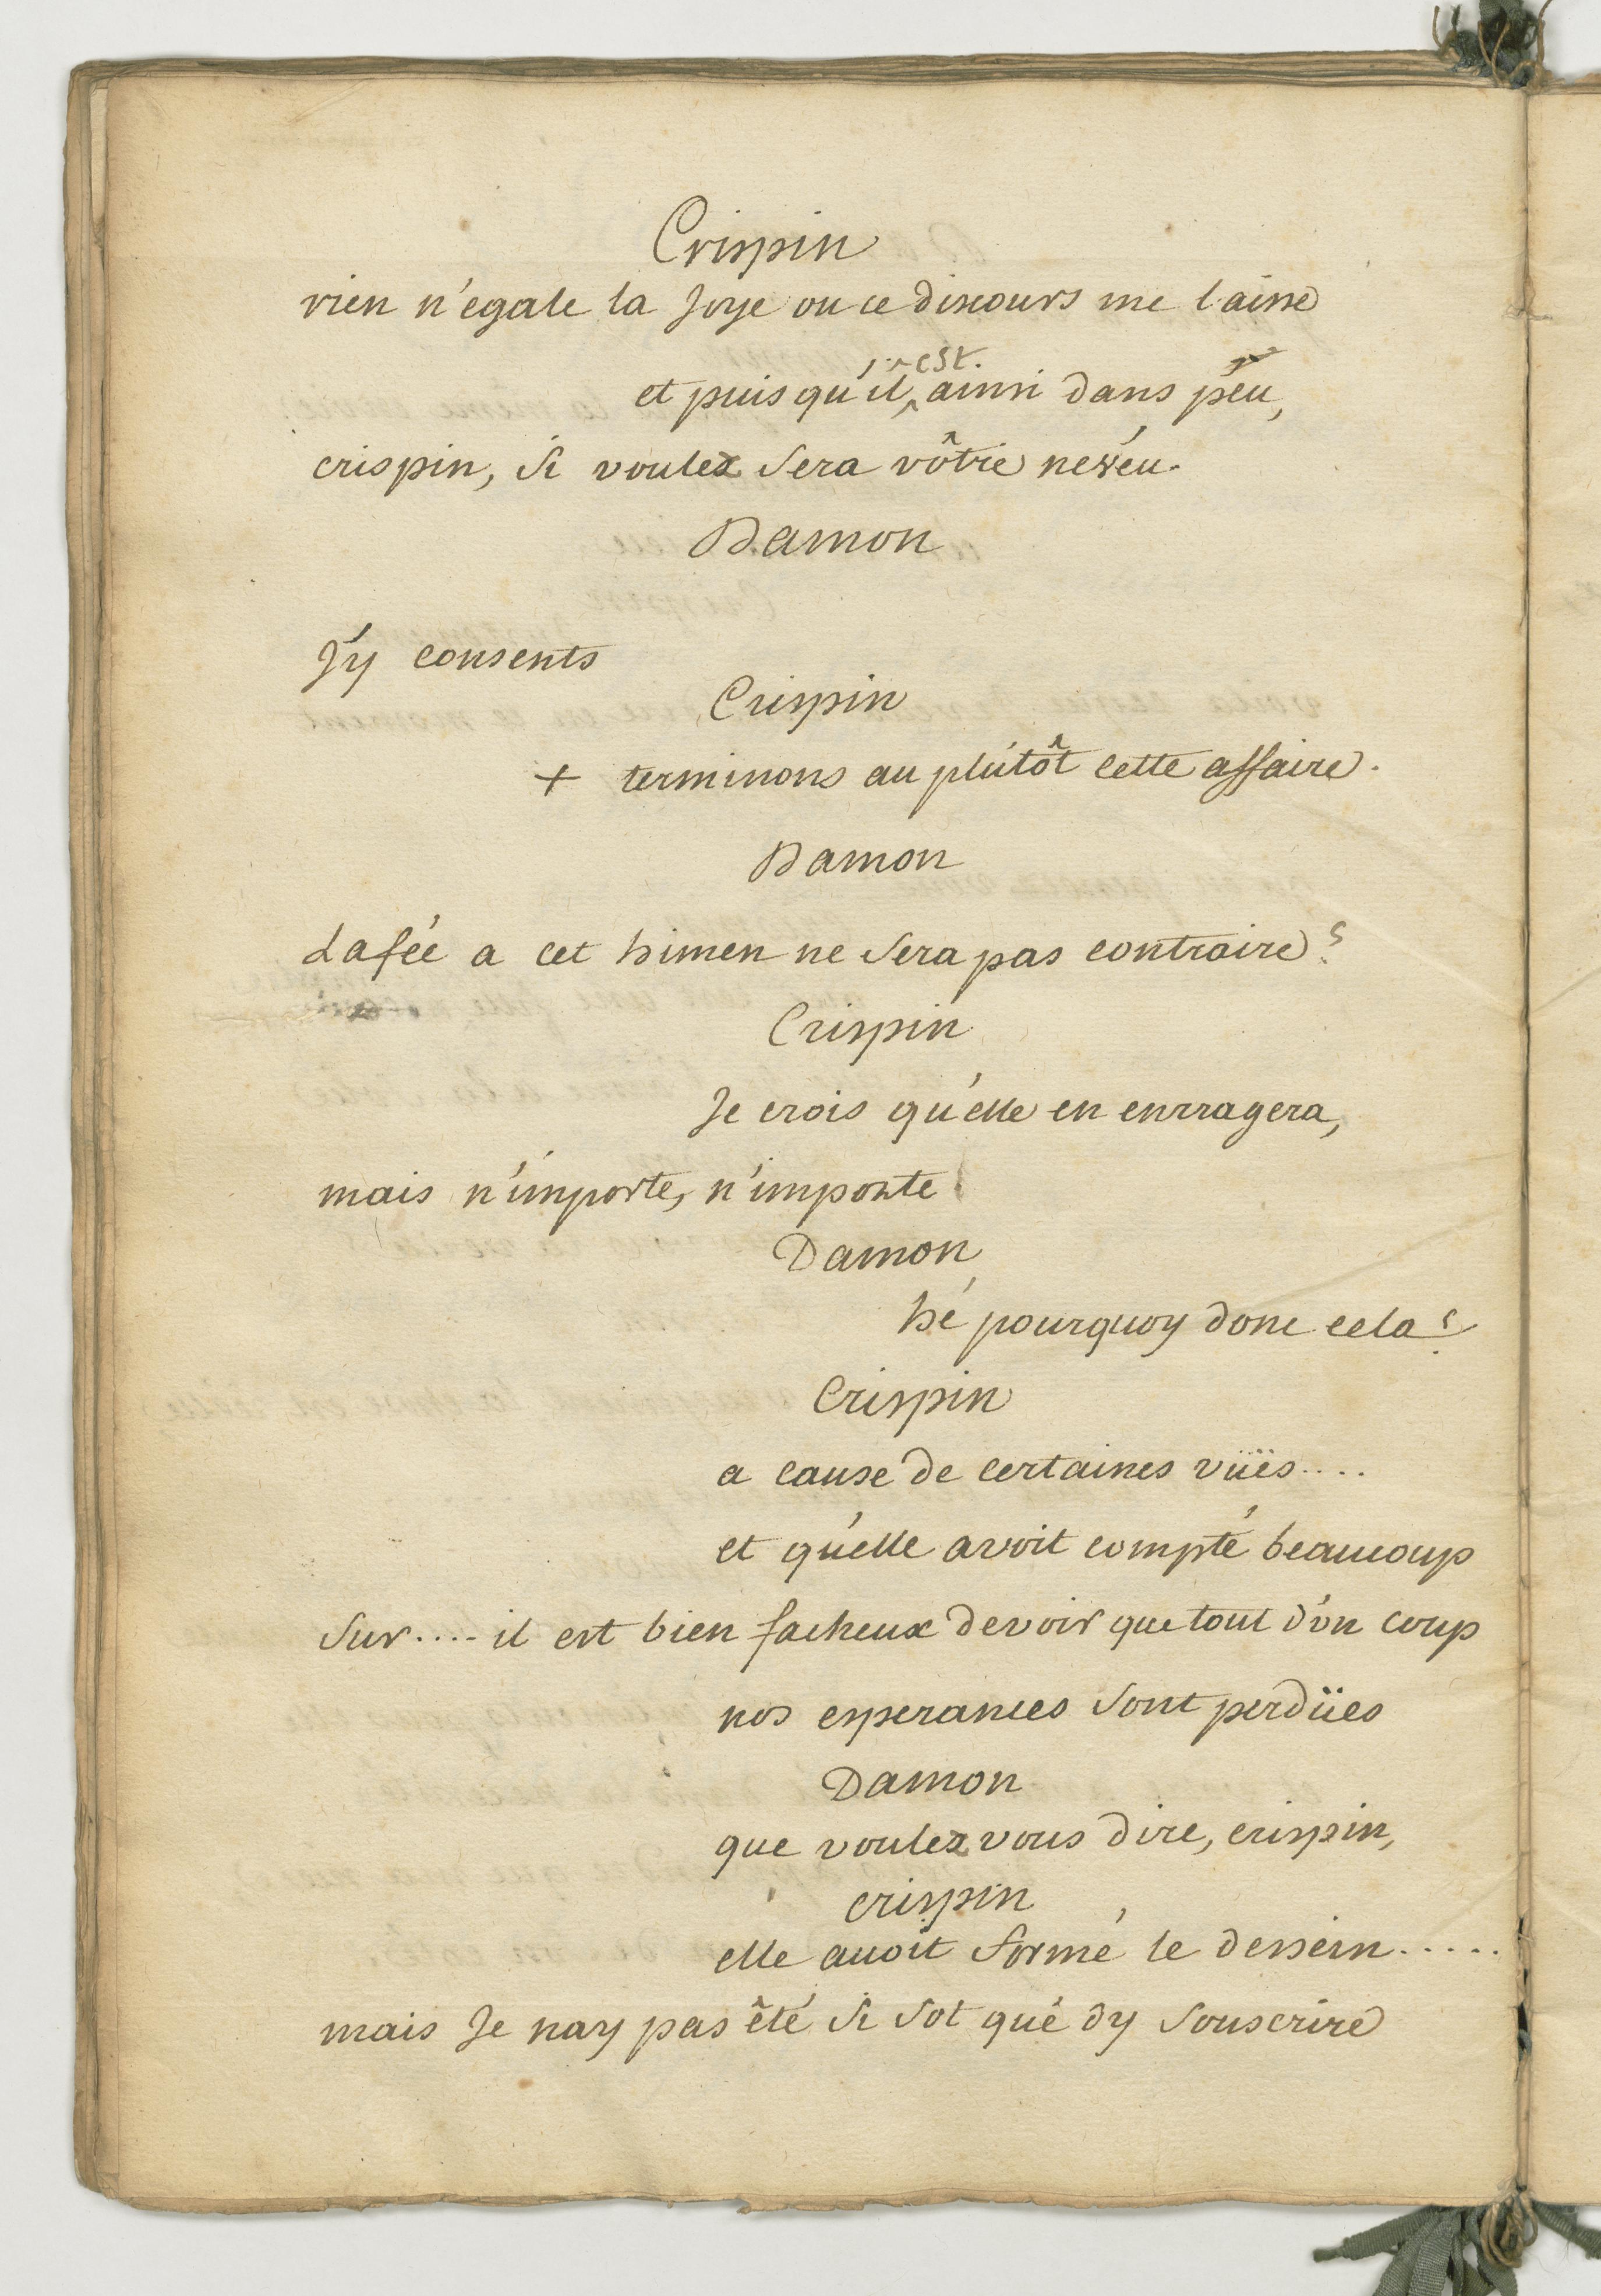 Crispin
rien n'egale la Joye ou ce discours me laisse
et puis qu'il est ainsi dans peu,
crispin, si voulez sera vôtre neveu.
Damon
J'y consents
Crispin
+ terminons au plûtôt cette affaire.
Damon
La fée a cet himen ne sera pas contraire?
Crispin
Je crois qu'elle en enrragera,
mais n'importe, n'importe
Damon
hé pourquoy donc cela?
Crispin
a cause de certaines vüës....
et qu'elle avoit compté beaucoup
Sur.... il est bien facheux de voir que tout d'un coup
nos esperances sont perdües
Damon
que voulez vous dire, crispin,
crispin
elle auoit formé le dessein.....
mais Je nay pas êté si sot que dy souscrire